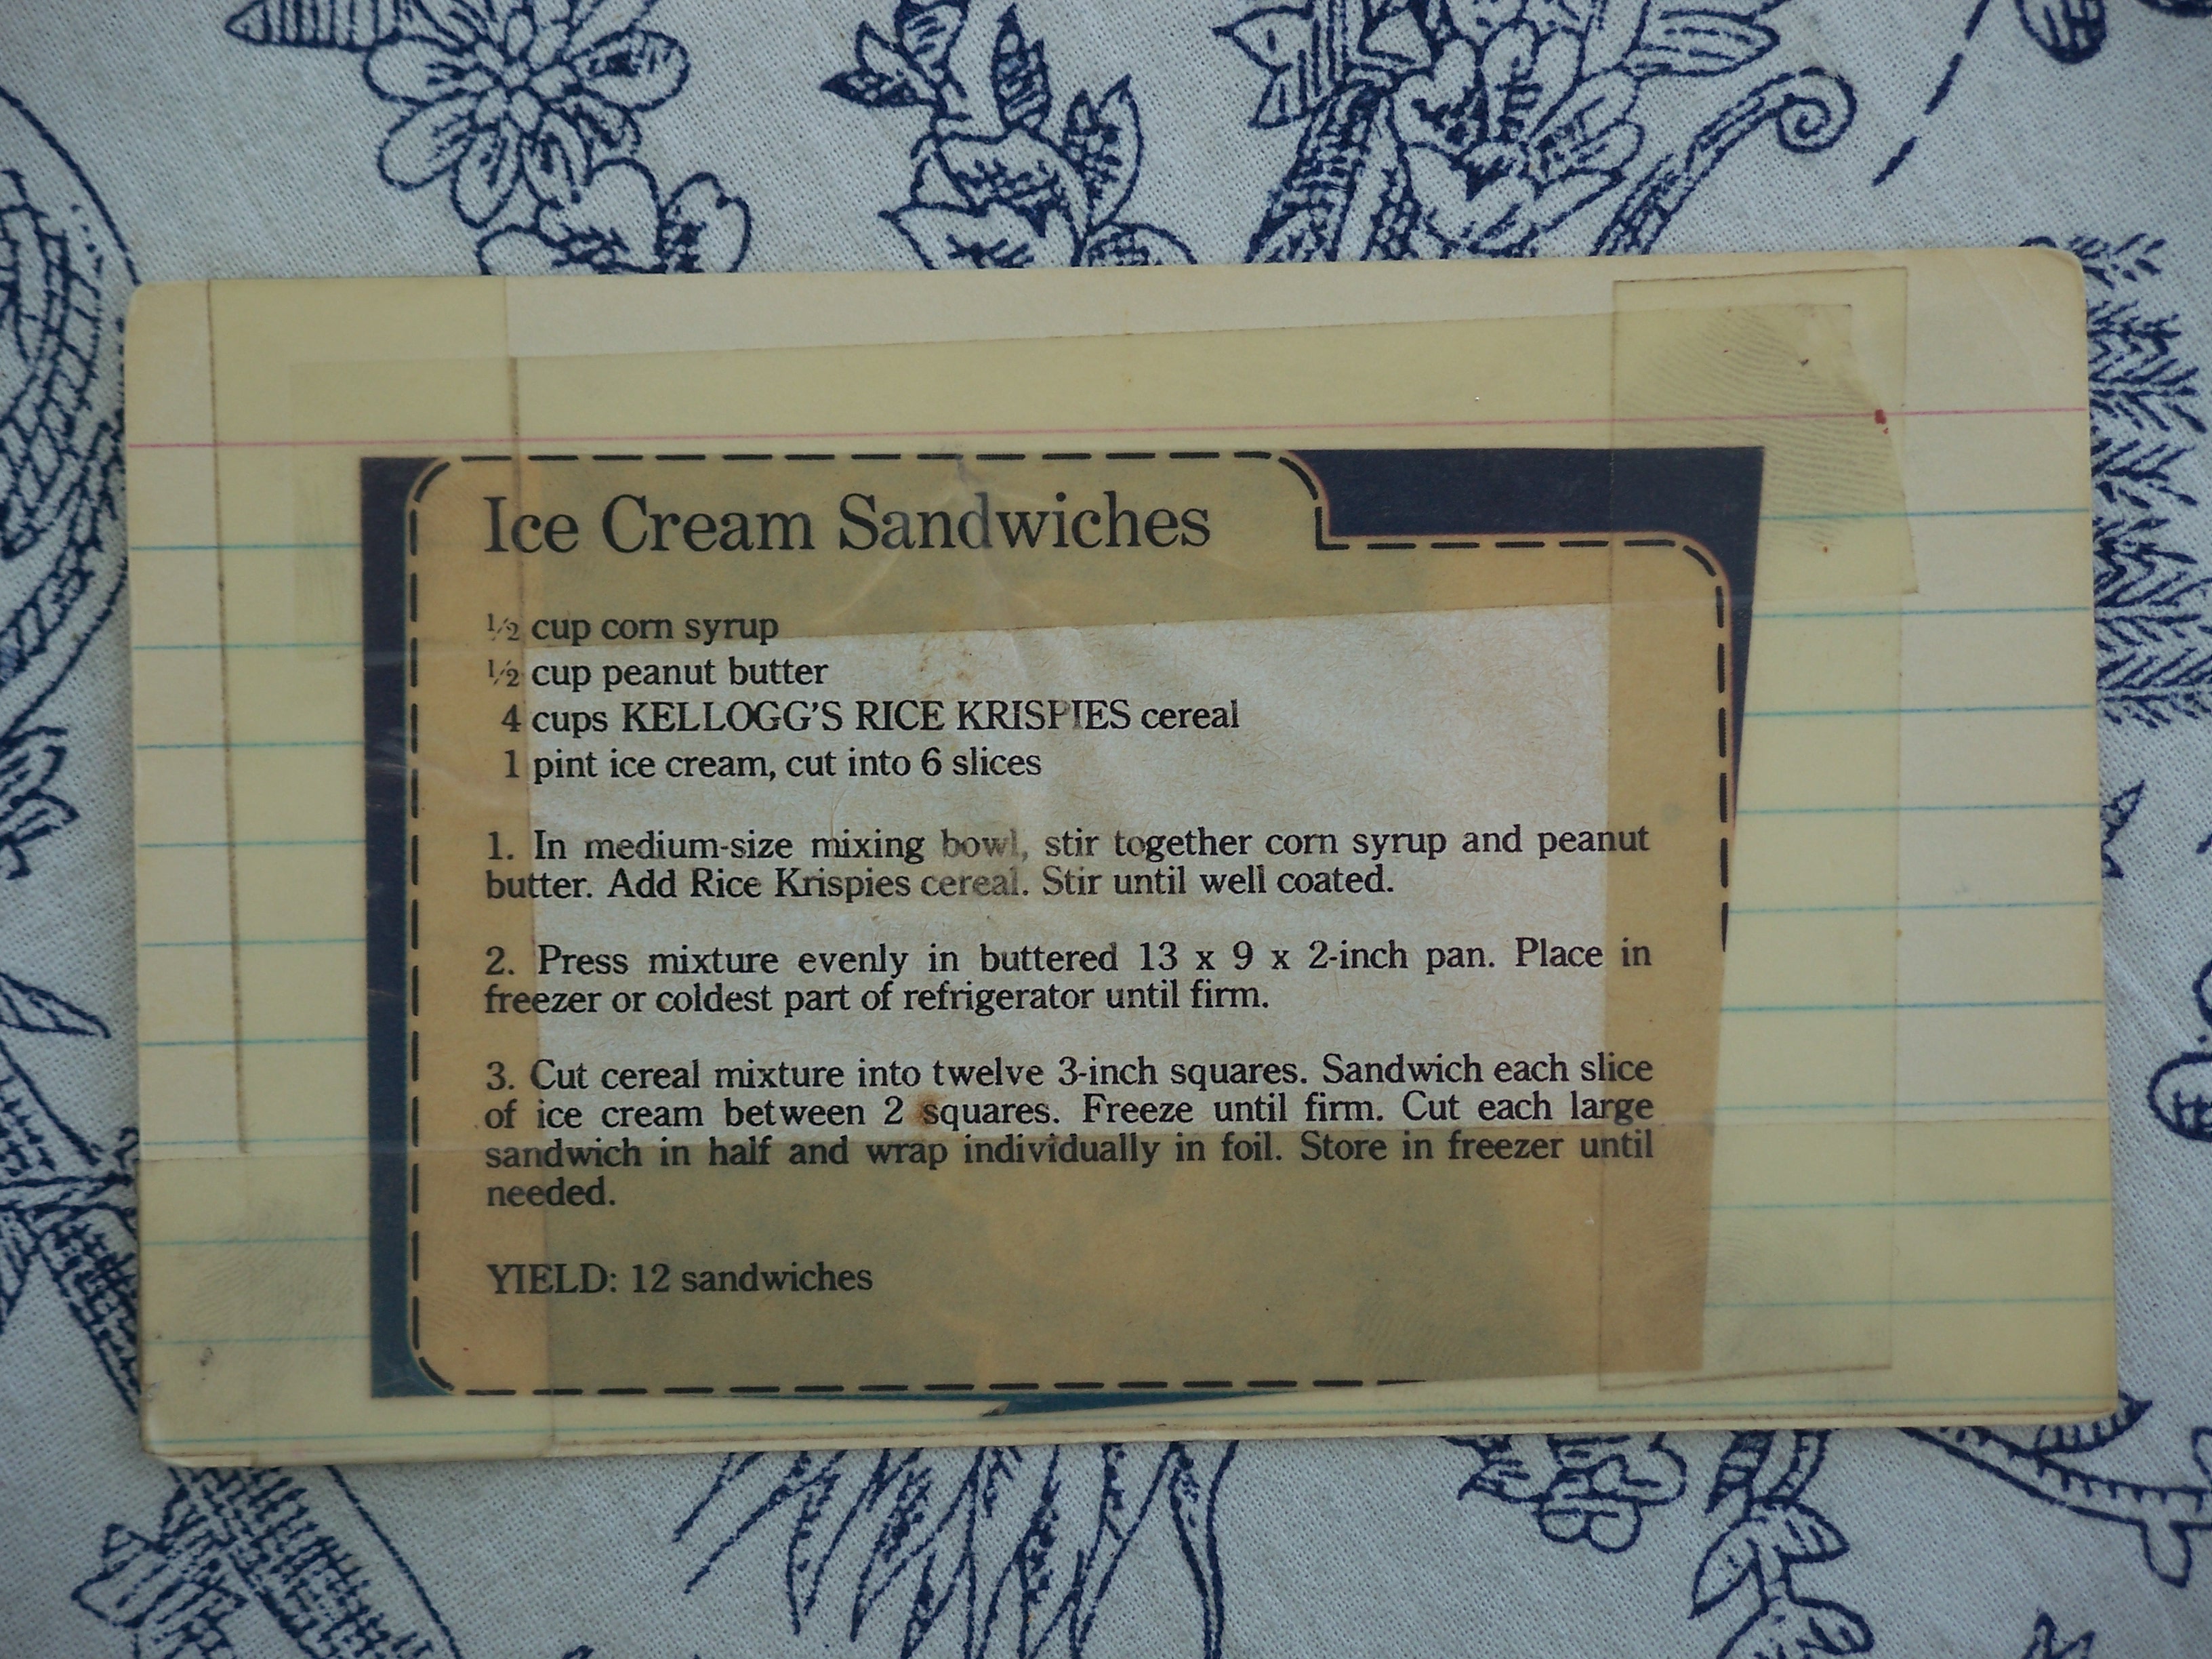 Ice Cream Sandwiches
½ cup corn syrup
½ cup peanut butter
4 cups KELLOGG'S RICE KRISPIES cereal
1 pint ice cream, cut into 6 slices
1. In medium-size mixing bowl, stir together corn syrup and peanut
butter. Add Rice Krispies cereal. Stir until well coated.
2. Press mixture evenly in buttered 13 x 9 x 2-inch pan. Place in
freezer or coldest part of refrigerator until firm.
3. Cut cereal mixture into twelve 3-inch squares. Sandwich each slice
of ice cream between 2 squares. Freeze until firm. Cut each large
sandwich in half and wrap individually in foil. Store in freezer until
needed.
YIELD: 12 sandwiches